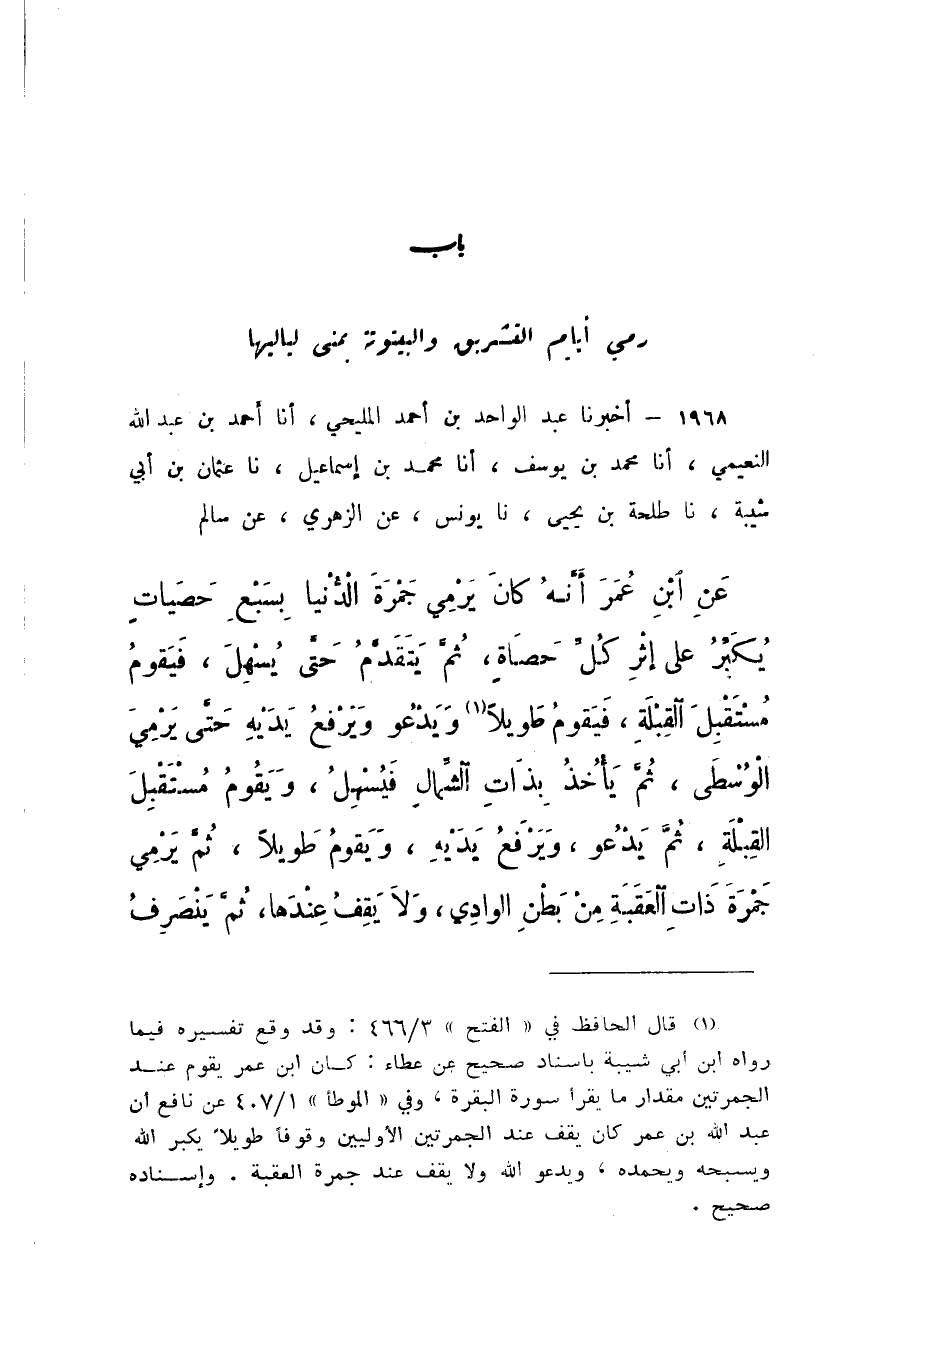 باب
رمي أيام التشريق والبيتوتة بمنى لياليها
١٩٦٨ – أخبرنا عبد الواحد بن أحمد المليحي ، أنا أحمد بن عبد الله
النعيمي ، أنا محمد بن يوسف ، أنا محمد بن إسماعيل ، نا عثمان بن أبي
شيبة ، نا طلحة بن يحيى ، نا يونس ، عن الزهري ، عن سالم
عَنِ ٱبْنِ عُمَرَ أَنَّهُ كانَ يَرْمِي جَمْرَةَ الْدُّنْيا بِسَبْعِ حَصَياتٍ
يُكَبِّرُ على إثْرِ كُلِّ حَصَاةٍ ، ثُمَّ يَتَقَدَّمُ حَتَّى يُسْهِلَ ، فَيَقومُ
مُسْتَقْبِلَ ٱلْقِبْلَةِ ، فَيَقومُ طَويلاً(١) وَيَدْعُو وَيَرْفعُ يَدَيْهِ حَتَّى يَرْمِيَ
الْوُسْطَى ، ثُمَّ يَأْخُذُ بِذَاتِ ٱلشِّمالِ فَيُسْهِلُ ، وَيَقُومُ مُسْتَقْبِلَ
القِبْلَةِ ، ثُمَّ يَدْعُو ، وَيَرْفَعُ يَدَيْهِ ، وَيَقومُ طَويلاً ، ثُمَّ يَرْمِي
جَمْرَةَ ذَاتِ ٱلْعَقَبَةِ مِنْ بَطْنِ الوادِي ، وَلاَ يَقِفُ عِنْدَها، ثُمَّ يَنْصَرِفُ
(١) قال الحافظ في « الفتح » ٤٦٦/٣ : وقد وقع تفسيره فيما
رواه ابن أبي شيبة باسناد صحيح عن عطاء : كان ابن عمر يقوم عند
الجمرتين مقدار ما يقرأ سورة البقرة ، وفي « الموطأ » ٤٠٧/١ عن نافع أن
عبد الله بن عمر كان يقف عند الجمرتين الأوليين وقوفاً طويلاً يكبر الله
ويسبحه ويحمده ، ويدعو الله ولا يقف عند جمرة العقبة . وإسناده
صحيح .